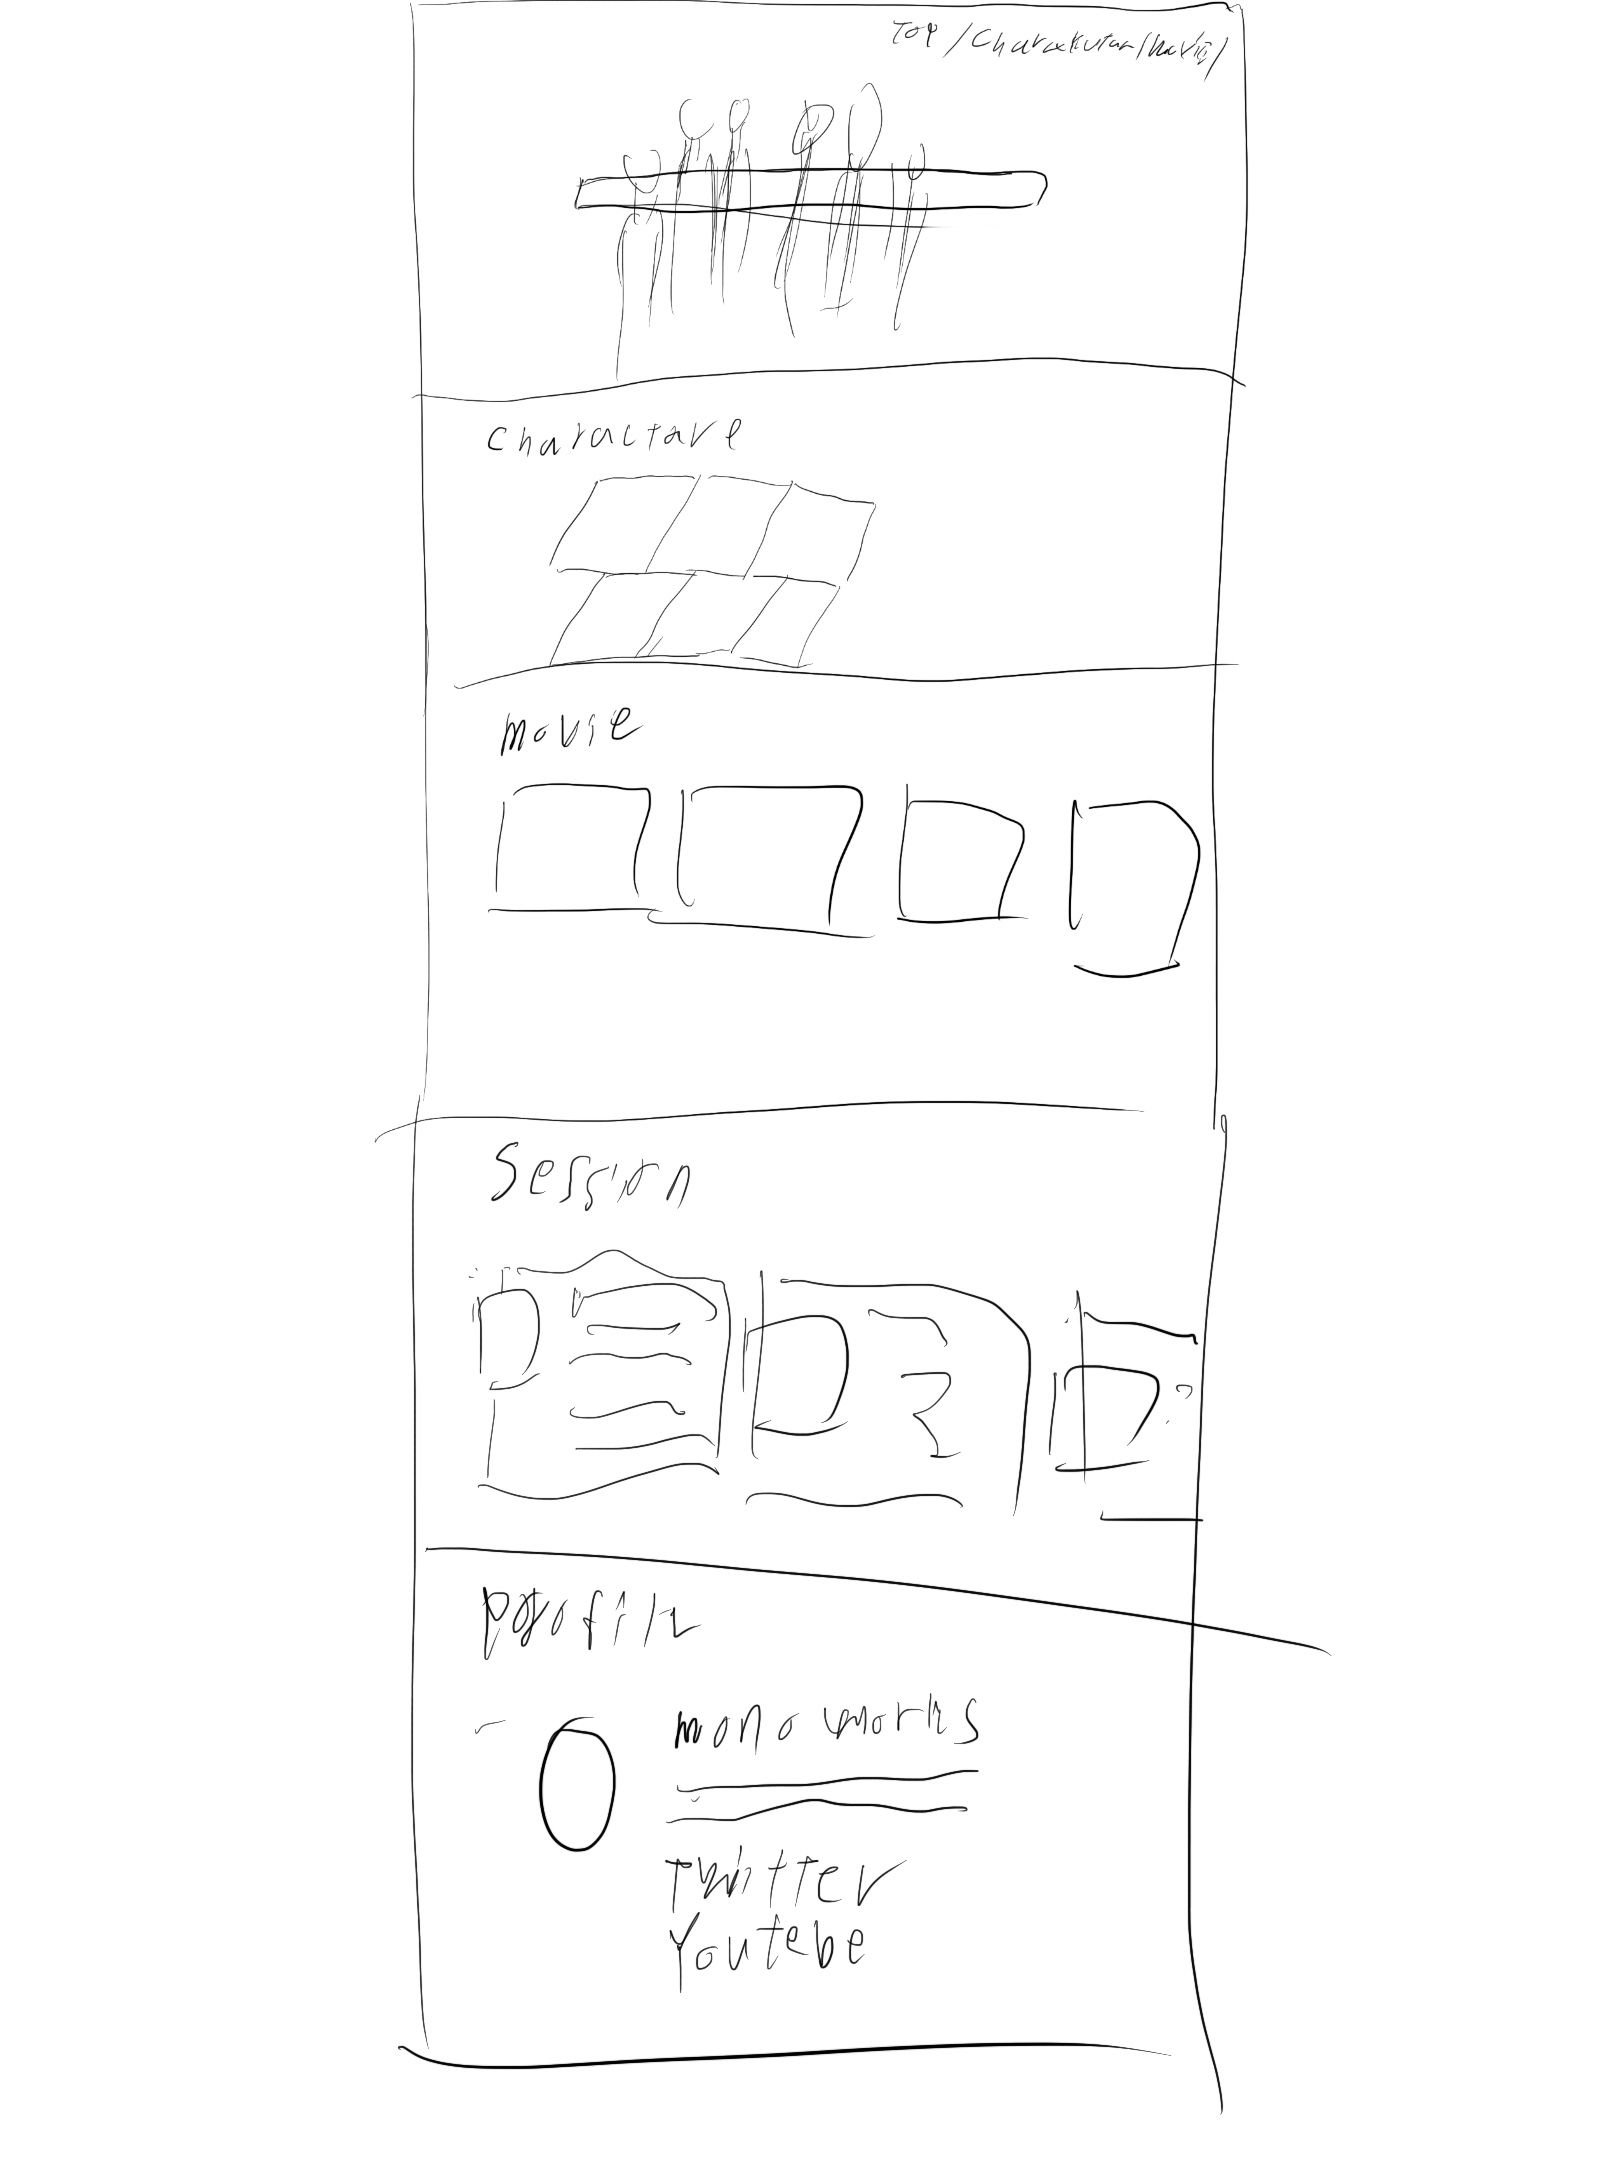 TOP / Charakutar / Movie /
Charactare
movie
Session
Profile
mono works
Twitter
Youtebe